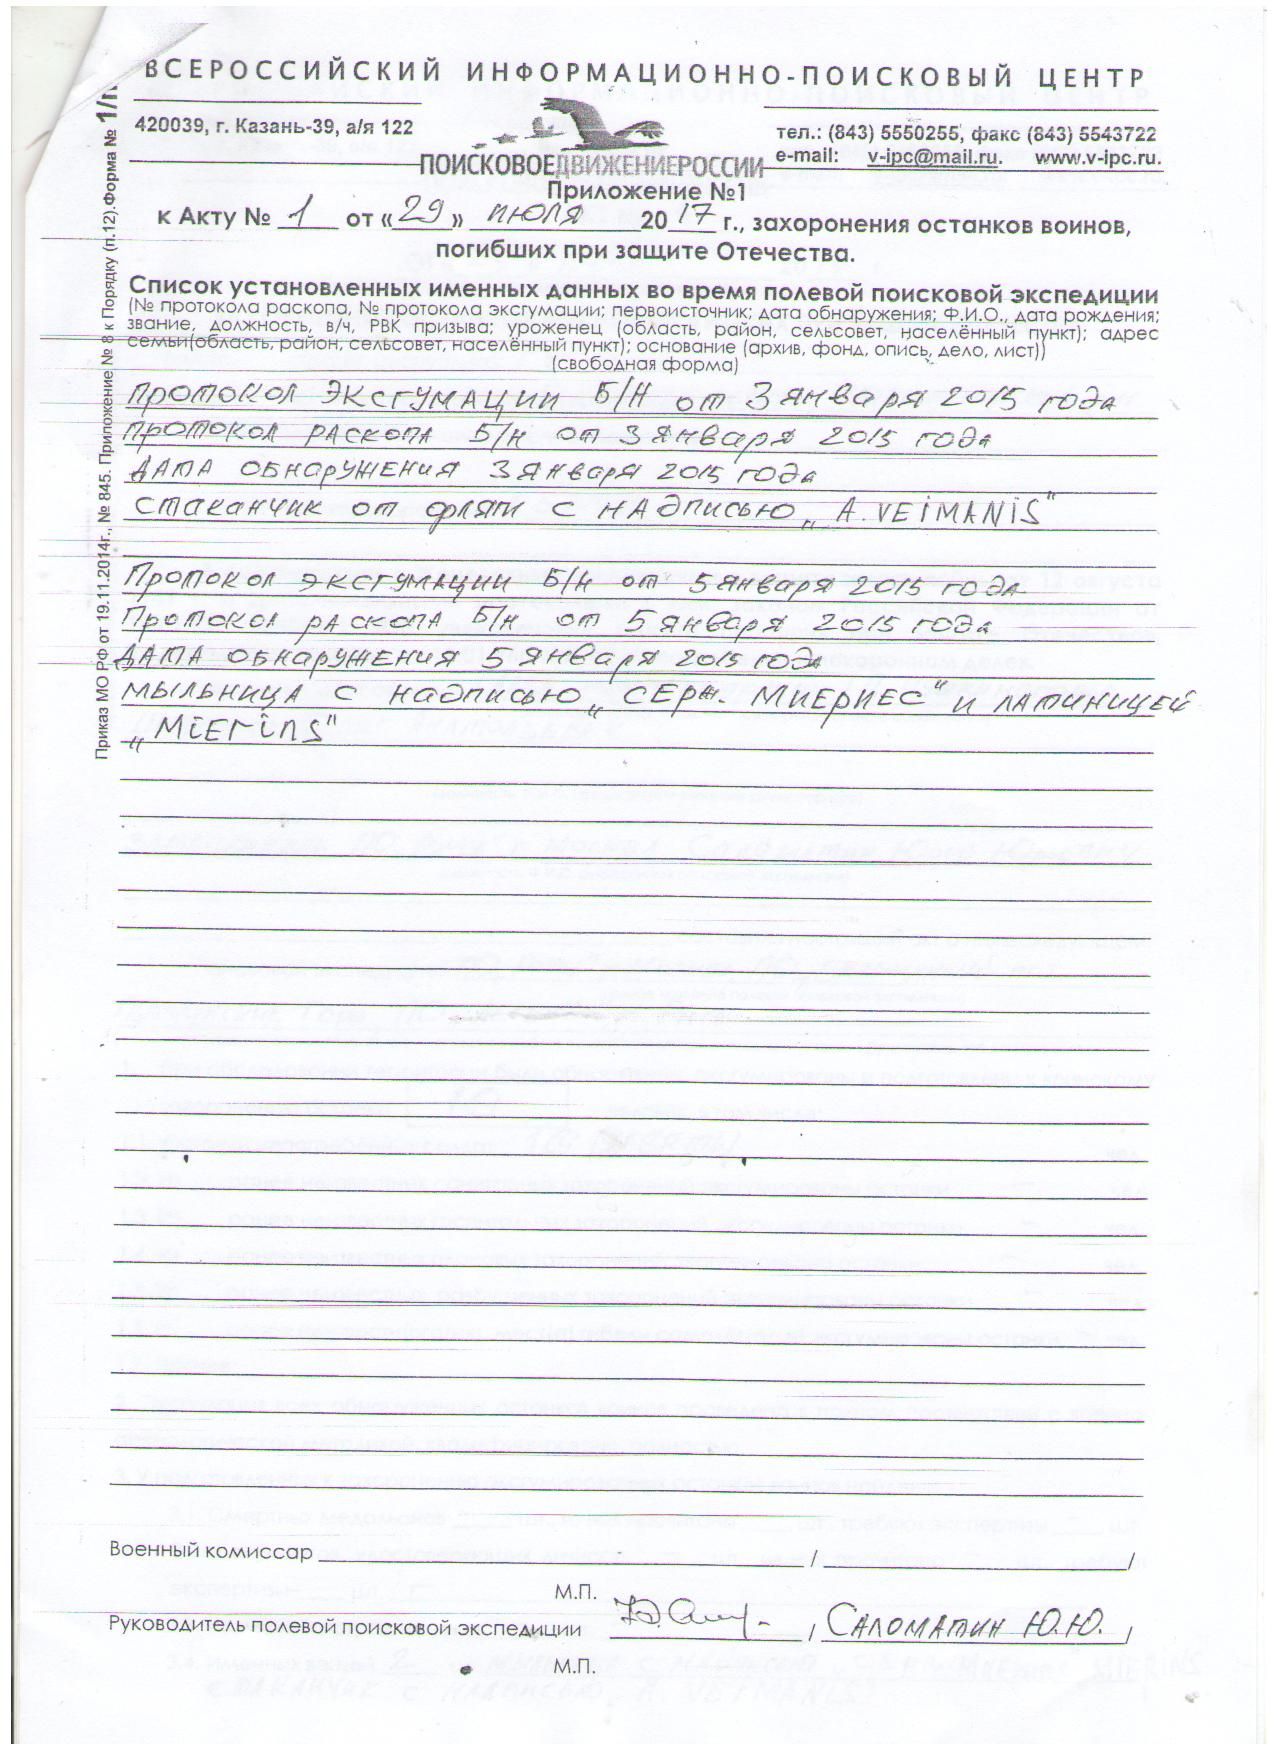 ВСЕРОССИЙСКИЙ ИНФОРМАЦИОННО-ПОИСКОВЫЙ ЦЕНТР
420039, г. Казань-39, а/я 122
тел.: (843) 5550255, факс (843) 5543722
e-mail: v-ipc@mail.ru. www.v-ipc.ru.
ПОИСКОВОЕДВИЖЕНИЕРОССИИ
Приложение №1
к Акту № 1 от «29» июля 2017 г., захоронения останков воинов,
погибших при защите Отечества.
Список установленных именных данных во время полевой поисковой экспедиции
(№ протокола раскопа, № протокола эксгумации; первоисточник; дата обнаружения; Ф.И.О., дата рождения;
звание, должность, в/ч, РВК призыва; уроженец (область, район, сельсовет, населённый пункт); адрес
семьи(область, район, сельсовет, населённый пункт); основание (архив, фонд, опись, дело, лист))
(свободная форма)
Протокол эксгумации Б/Н от 3 января 2015 года
Протокол раскопа Б/Н от 3 января 2015 года
Дата обнаружения 3 января 2015 года
Стаканчик от фляги с надписью „A. VEIMANIS"
Протокол эксгумации Б/Н от 5 января 2015 года
Протокол раскопа Б/Н от 5 января 2015 года
Дата обнаружения 5 января 2015 года
Мыльница с надписью „Серж. Миериес" и латиницей
„MIERINS"
Военный комиссар / /
М.П.
Руководитель полевой поисковой экспедиции / Саломатин Ю.Ю. /
М.П.
Приказ МО РФ от 19.11.2014г., № 845. Приложение № 8 к Порядку (п.12). Форма №